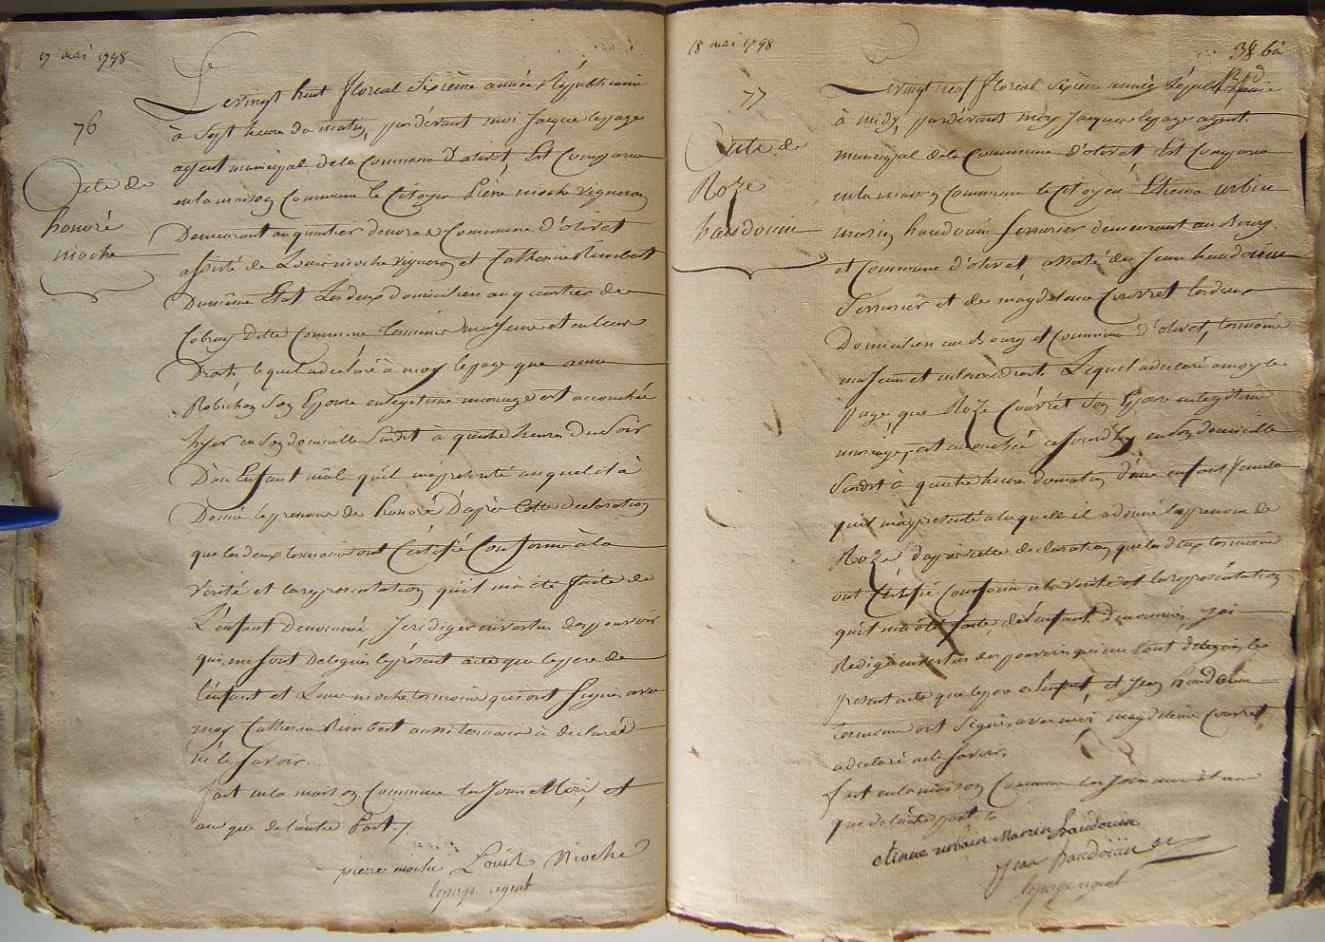 17 mai 1798
76
Acte de
honoré
nioche
Le vingt huit floreal Sixième année Républicaine
à Sept heure du matin, pardevant moi Jacque lepage
agent municipal dela Commune d'olivet, Est Comparu
enla maison Commune le Citoyen Pière nioche vigneron
Demeurant au quartier Commune d'olivet
assisté de Louis nioche vigneron et Catherine Rimbert
Dumême Etat Les deux domiciliés au quartier de
Cobray ditte Commune temoins majeure et enleurs
Droits lequel adeclaré à moy lepage que anne
Robichon Son Epouse enlegitime mariage est accouchée
hyer en Son domicille Susdit à quatre heures Du Soir
D'un Enfant mâle qu'il m'apresenté auquel il à
Donné leprenom de honoré D'après Cette declaration
que les deux temoins ont Certifié Conforme à la
Vérité et lareprésentation qu'il m'a été faite de
L'enfant Denommé, Jerédiger envertus des pouvoir
qui me Sont delegués leprésent acte que lepere de
l'enfant et Louis nioche temoins qui ont Signé avec
moy Catherine Rimbert aussi temoin à declaré
ne le Savoir.
fait enla maison Commune les Jours Mois, et
an que delautre Part./.
pierre nioche Louis Nioche
lepage agent
18 mai 1798
38 bis
77
Acte de
Roze
haudouin
Le vingt neuf floreal Sixième année Républicaine
à midy, pardevant moy Jacque lepage agent
municipal dela Commune d'olivet, Est Comparu
enla maison Commune le Citoyen Etienne urbin
marin haudouin Serrurier demeurant au Bourg
et Commune d'olivet, assisté de Jean haudouin
Serrurier et de magdelaine Couvret tous deux
Domicilies au Bourg et Commune d'olivet, temoins
majeurs et enleurs droits. Lequel adeclaré amoy le
page, que Roze Couvret Son Epouse enlegitime
mariage, est accouchée aujourd'huy en Son domicille
Susdit à quatre heure dumatin d'une enfant femelle
qu'il m'apresenté alaquelle il adonné leprenom de
Roze d'après cette declaration, que les deux temoins
ont Certifié Conforme à la Verité et lareprésentation
qu'il m'a été faite de l'enfant denommé, J'ai
Redigé envertus des pouvoirs qui me Sont delegués le
présent acte que lepere de l'enfant, et Jean haudouin
temoins ont Signé avec moi magdelaine Couvret
adeclaré ne le Savoir.
fait enla maison Commune les Jour mois et an
que delautre part
etienne urbain Marin haudouin
Jean haudouin
lepage agent